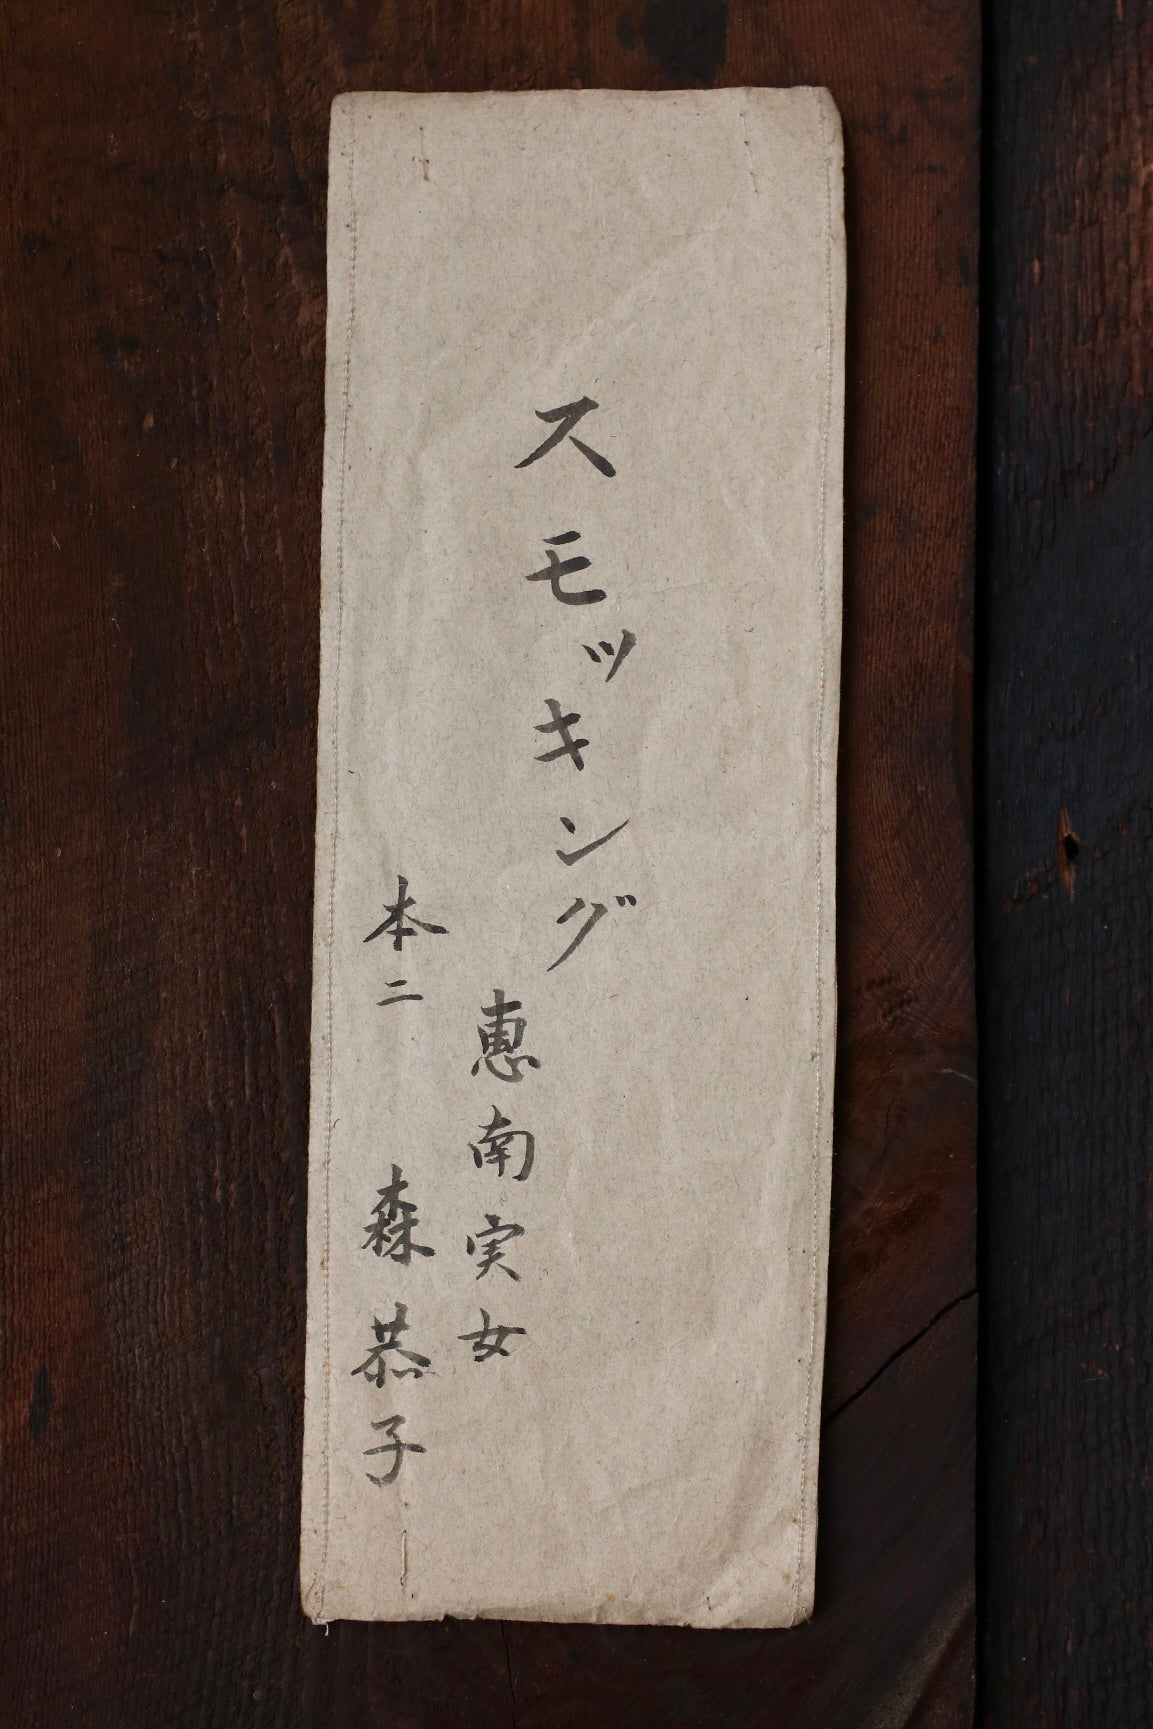 スモッキング
恵南実女
本二 森恭子